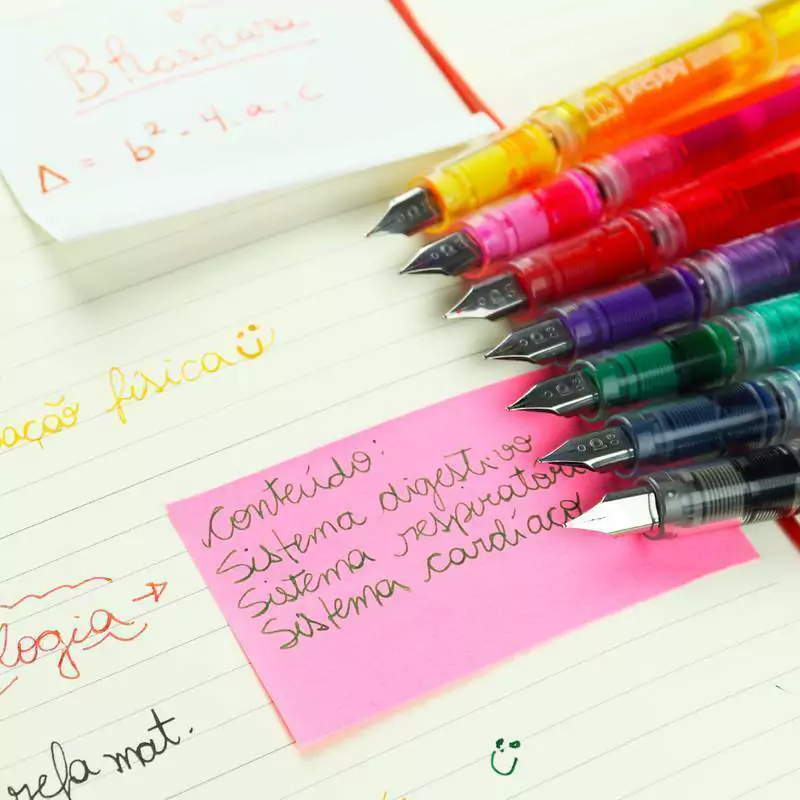 Bhaskara
Δ = b² - 4.a.c
03 preppy
ação física
Conteúdo:
Sistema digestivo
Sistema respiratório
Sistema cardíaco
logia →
refa mat.